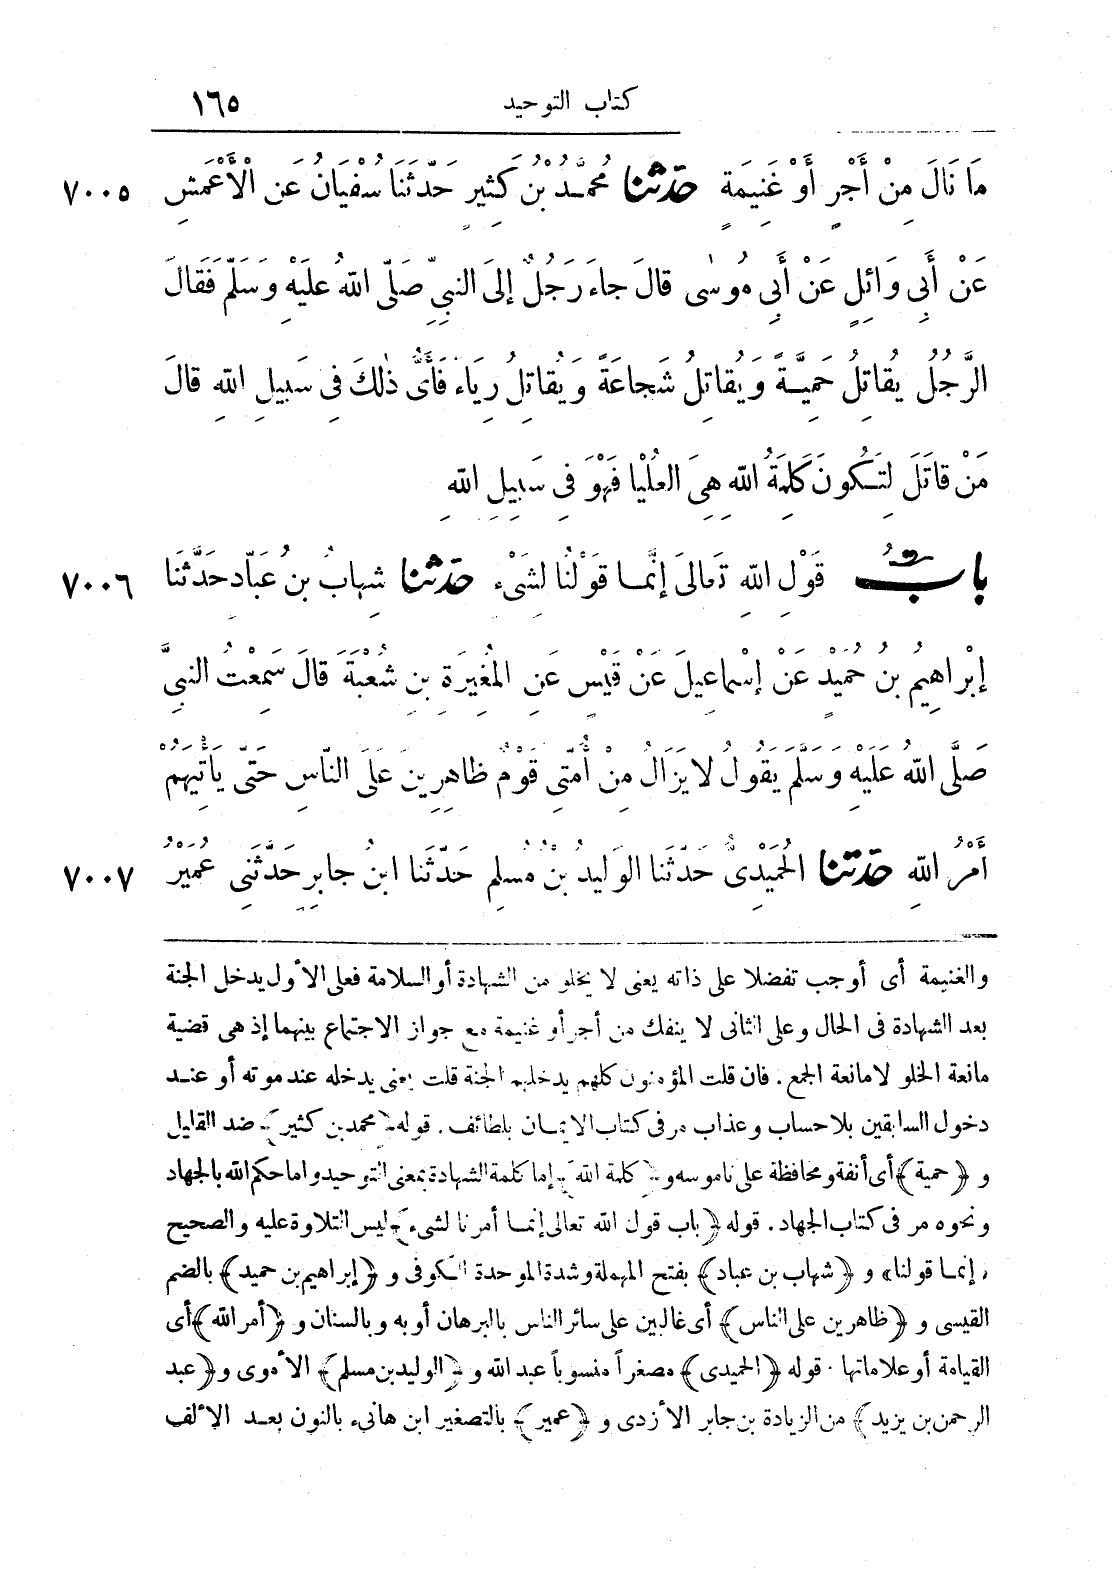 كتاب التوحيد ١٦٥
مَا نَالَ مِنْ أَجْرٍ أَوْ غَنِيمَةٍ حدّثنا مُحَمَّدُ بْنُ كَثِيرٍ حَدَّثَنَا سُفْيَانُ عَنِ الْأَعْمَشِ ٧٠٠٥
عَنْ أَبِى وَائِلٍ عَنْ أَبِى مُوسٰى قالَ جاءَ رَجُلٌ إلَى النبىِّ صَلّى اللهُ عَلَيْهِ وَسَلَّمَ فَقالَ
الرَّجُلُ يُقاتِلُ حَمِيَّةً وَيُقاتِلُ شَجاعَةً وَيُقاتِلُ رِيَاءً فَأَىُّ ذٰلكَ فِى سَبِيلِ اللهِ قالَ
مَنْ قاتَلَ لِتَكُونَ كَلِمَةُ اللهِ هِىَ العُلْيا فَهْوَ فى سَبِيلِ اللهِ
بابُ قَوْلِ اللهِ تَعالَى إنَّما قَوْلُنا لِشَىْءٍ حدّثنا شِهابُ بنُ عَبّادٍ حَدَّثَنا ٧٠٠٦
إبْراهِيمُ بنُ حُمَيْدٍ عَنْ إسْماعِيلَ عَنْ قَيْسٍ عَنِ المُغِيرَةِ بنِ شُعْبَةَ قالَ سَمِعْتُ النبىَّ
صَلَّى اللهُ عَلَيْهِ وَسَلَّمَ يَقُولُ لا يَزَالُ مِنْ أُمَّتِى قَوْمٌ ظاهِرِينَ عَلَى النّاسِ حَتَّى يَأْتِيَهُمْ
أَمْرُ اللهِ حدّثنا الحُمَيْدِىُّ حَدَّثَنا الوَلِيدُ بْنُ مُسْلِمٍ حَدَّثَنا ابنُ جابِرٍ حَدَّثَنِى عُمَيْرُ ٧٠٠٧
والغنيمة أى أوجب تفضلا على ذاته يعنى لا يخلو من الشهادة أو السلامة فعلى الأول يدخل الجنة
بعد الشهادة فى الحال وعلى الثانى لا ينفك من أجر أو غنيمة مع جواز الاجتماع بينهما إذ هى قضية
مانعة الخلو لا مانعة الجمع. فان قلت المؤمنون كلهم يدخلهم الجنة قلت يعنى يدخله عند موته أو عند
دخول السابقين بلا حساب وعذاب مر فى كتاب الايمان بلطائف. قوله ﴿محمد بن كثير﴾ ضد القليل
و ﴿حمية﴾ أى أنفة ومحافظة على ناموسه و ﴿كلمة الله﴾ إما كلمة الشهادة بمعنى التوحيد واما حكم الله بالجهاد
ونحوه مر فى كتاب الجهاد. قوله ﴿باب قول الله تعالى إنما أمرنا لشىء﴾ ليس التلاوة عليه والصحيح
« إنما قولنا» و ﴿شهاب بن عباد﴾ بفتح المهملة وشدة الموحدة الكوفى و ﴿إبراهيم بن حميد﴾ بالضم
القيسى و ﴿ظاهرين على الناس﴾ أى غالبين على سائر الناس بالبرهان أو به وبالسنان و ﴿أمر الله﴾ أى
القيامة أو علاماتها. قوله ﴿الحميدى﴾ مصغراً منسوباً عبد الله و ﴿الوليد بن مسلم﴾ الأموى و ﴿عبد
الرحمن بن يزيد﴾ من الزيادة بن جابر الأزدى و ﴿عمير﴾ بالتصغير ابن هانىء بالنون بعد الألف